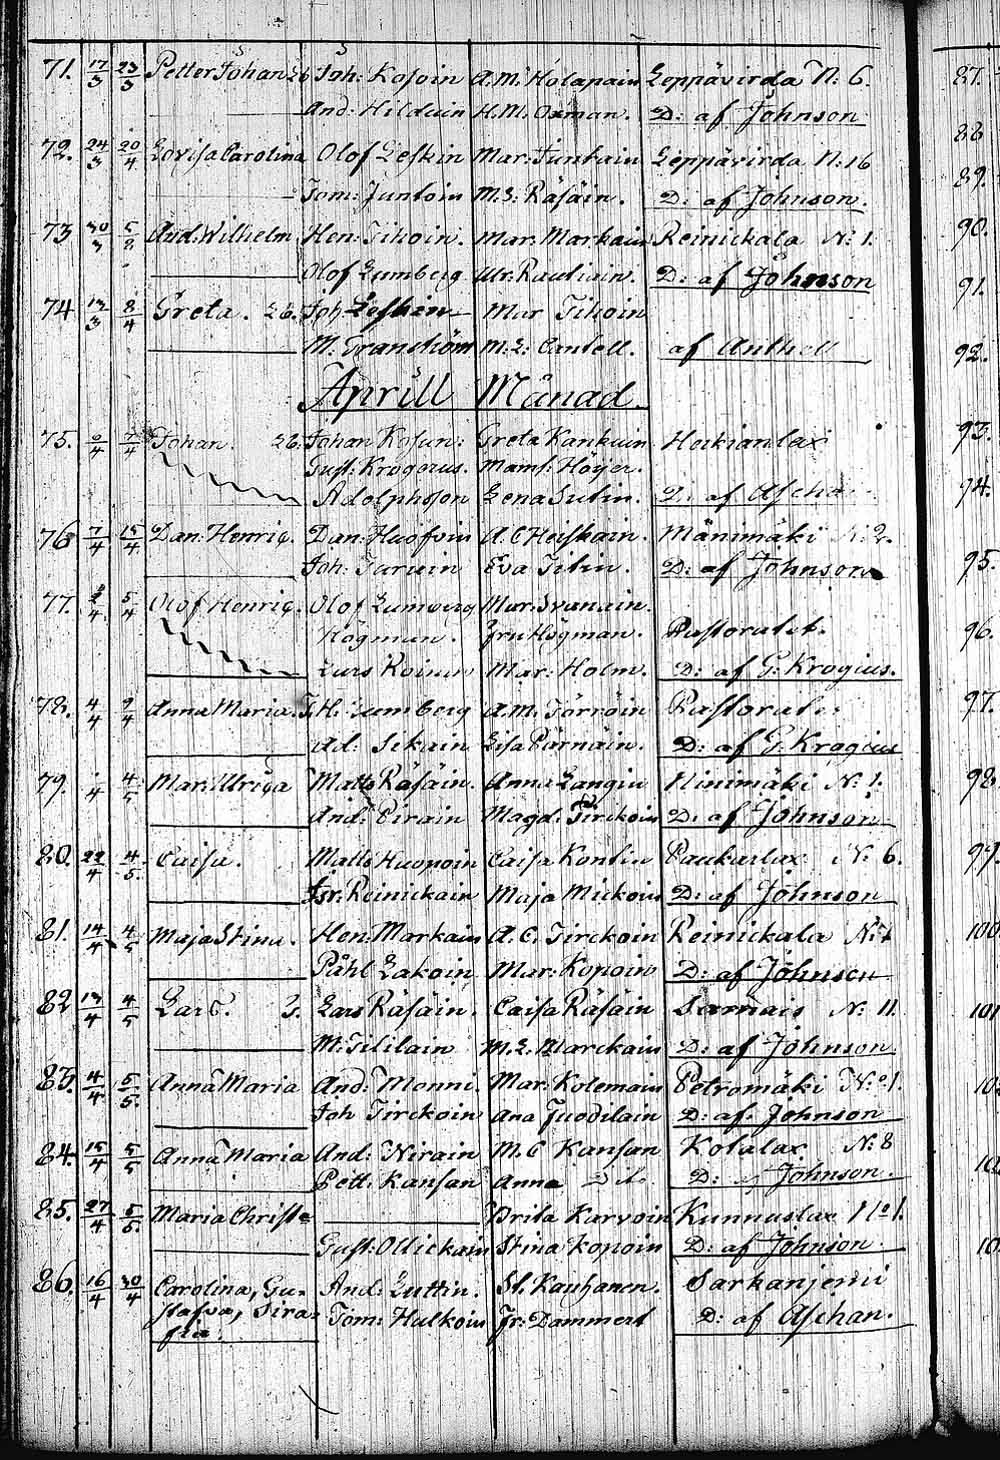 71. 17/3 23/3 Petter Johan 26 Joh: Kosoin A.M. Holapain Leppävirda N: 6.
And: Hilduin H.M. Oxman. D: af Johnson
72. 24/3 20/4 Lovisa Carolina Olof Leskin Mar: Juntuin Leppävirda N: 16
Tom: Juntoin M.S: Räsäin. D: af Johnson.
73 30/3 And: Wilhelm Hen: Tihoin. Mar: Markain Reinickala N: 1.
Olof Lumberg Ulr: Rautiain. D: af Johnson
74 13/3 8/4 Greta. 26. Joh Leskin Mar Tihoin
M: Granström M: L: Cantell. af Anthell
Aprill Månad.
75. 7/4 Johan. 26. Johan Kosun: Greta Kankuin Heikianlax
Gust: Krogerus. Mams: Höijer.
Adolphson Lena Sutin. D: af
76 7/4 15/4 Dan: Henric. Dan: Huosvin A.C Heiskain. Mänimäki N: 2.
Joh: Taruin Eva Titin. D: af Johnson
77. 5/4 Olof Henric. Olof Lumberg Mar: Svanain.
Högman. Fru Högman. Pastoratet.
Lars Roinin Mar: Holm. D: af G: Krogius.
78. 4/4 9/4 Anna Maria. H: Lumberg A.M. Törröin
Ad: Sikain Lisa Pärnäin. D: af G: Krogius
79. 4/5 Mar: Ulrica Matts Räsäin. Anna Langin Hinimäki N: 1.
And: Pirain Magd: Tirckoin D: af Johnson
80. 22/4 4/5. Caisa. Matts Huopoin Caisa Kontin Paukarlax N: 6.
Isr: Reinickain Maja Mickoin D: af Johnson
81. 14/4 4/5 Maja Stina. Hen: Markain A. C. Tirckoin Reinickala
Påhl Lakoin Mar: Kopoin D: af Johnson
82 13/4 4/5 Lars. Lars Räsäin. Caisa Räsäin N: 11.
M: Tililain M. L. Marckain D: af Johnson
83. 4/4 5/5. Anna Maria And: Monni. Mar: Kolemain Petromäki N:o 1.
Joh Tirckoin Ana Juodilain D: af. Johnson
84. 15/4 5/5 Anna Maria And: Nirain M. C Kansan Kotalax N: 8
Pett: Kansan Anna Dito D: af Johnson.
85. 27/4 5/5. Maria Christ Brita Karvoin Kunnuslax No 1.
Gust: Ollickain Stina Kopoin D: af Johnson
86. 16/4 30/4 Carolina, Gu- And: Luttin. St. Kauhanen. Sarkanjemi
stafva, Sira- Tom: Hulkoin Fr: Dammert D: af Aschan.
fia.
87.
88
89.
90.
91.
92.
93.
94.
95.
96.
97.
98
99.
100
101